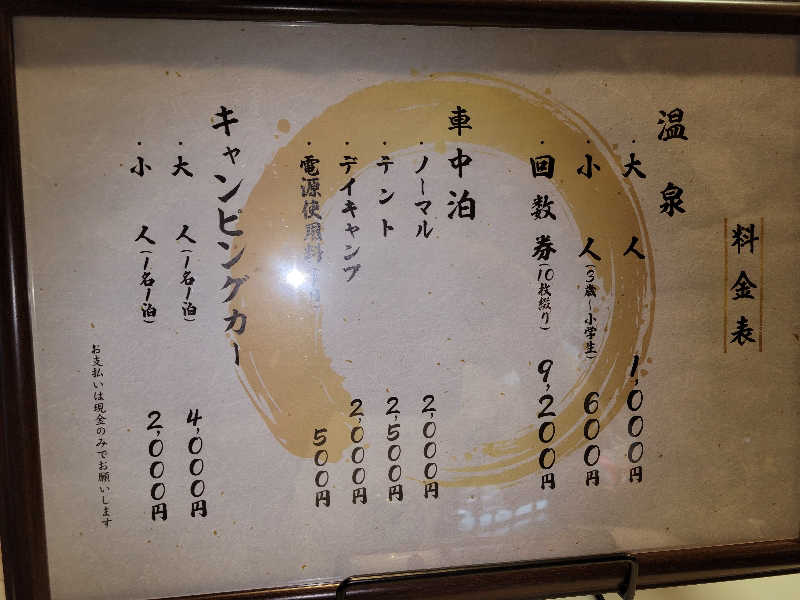 料金表
温泉
・大人 1,000円
・小人(3歳～小学生) 600円
・回数券(10枚綴り) 9,200円
車中泊
・ノーマル 2,000円
・テント 2,500円
・デイキャンプ 2,000円
・電源使用料 500円
キャンピングカー
・大人(1名1泊) 4,000円
・小人(1名1泊) 2,000円
お支払いは現金のみでお願いします